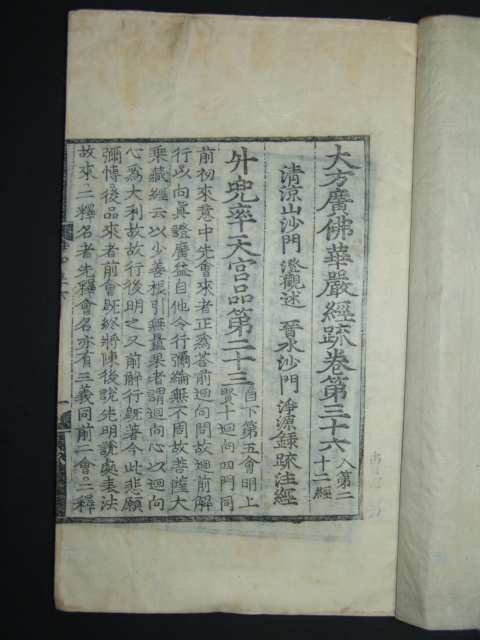 大方廣佛華嚴經䟽卷第三十六 入第二十二經
清涼山沙門 澄觀述 晉水沙門 淨源錄䟽注經
外兜率天宮品第二十三 自下第五會明上賢十迴向四門同
前初來意中先會來者正爲荅前迴向問故迴前解
行以向眞證廣益自他令行彌綸無不周故菩薩大
乘藏經云以少善根引無量果者謂迴向心以迴向
心爲大利故故行後明之又前解行旣著今此悲願
彌博後品來者前會旣終將陳後說先明說處表法
故來二釋名者先釋會名亦有三義同前二會二釋